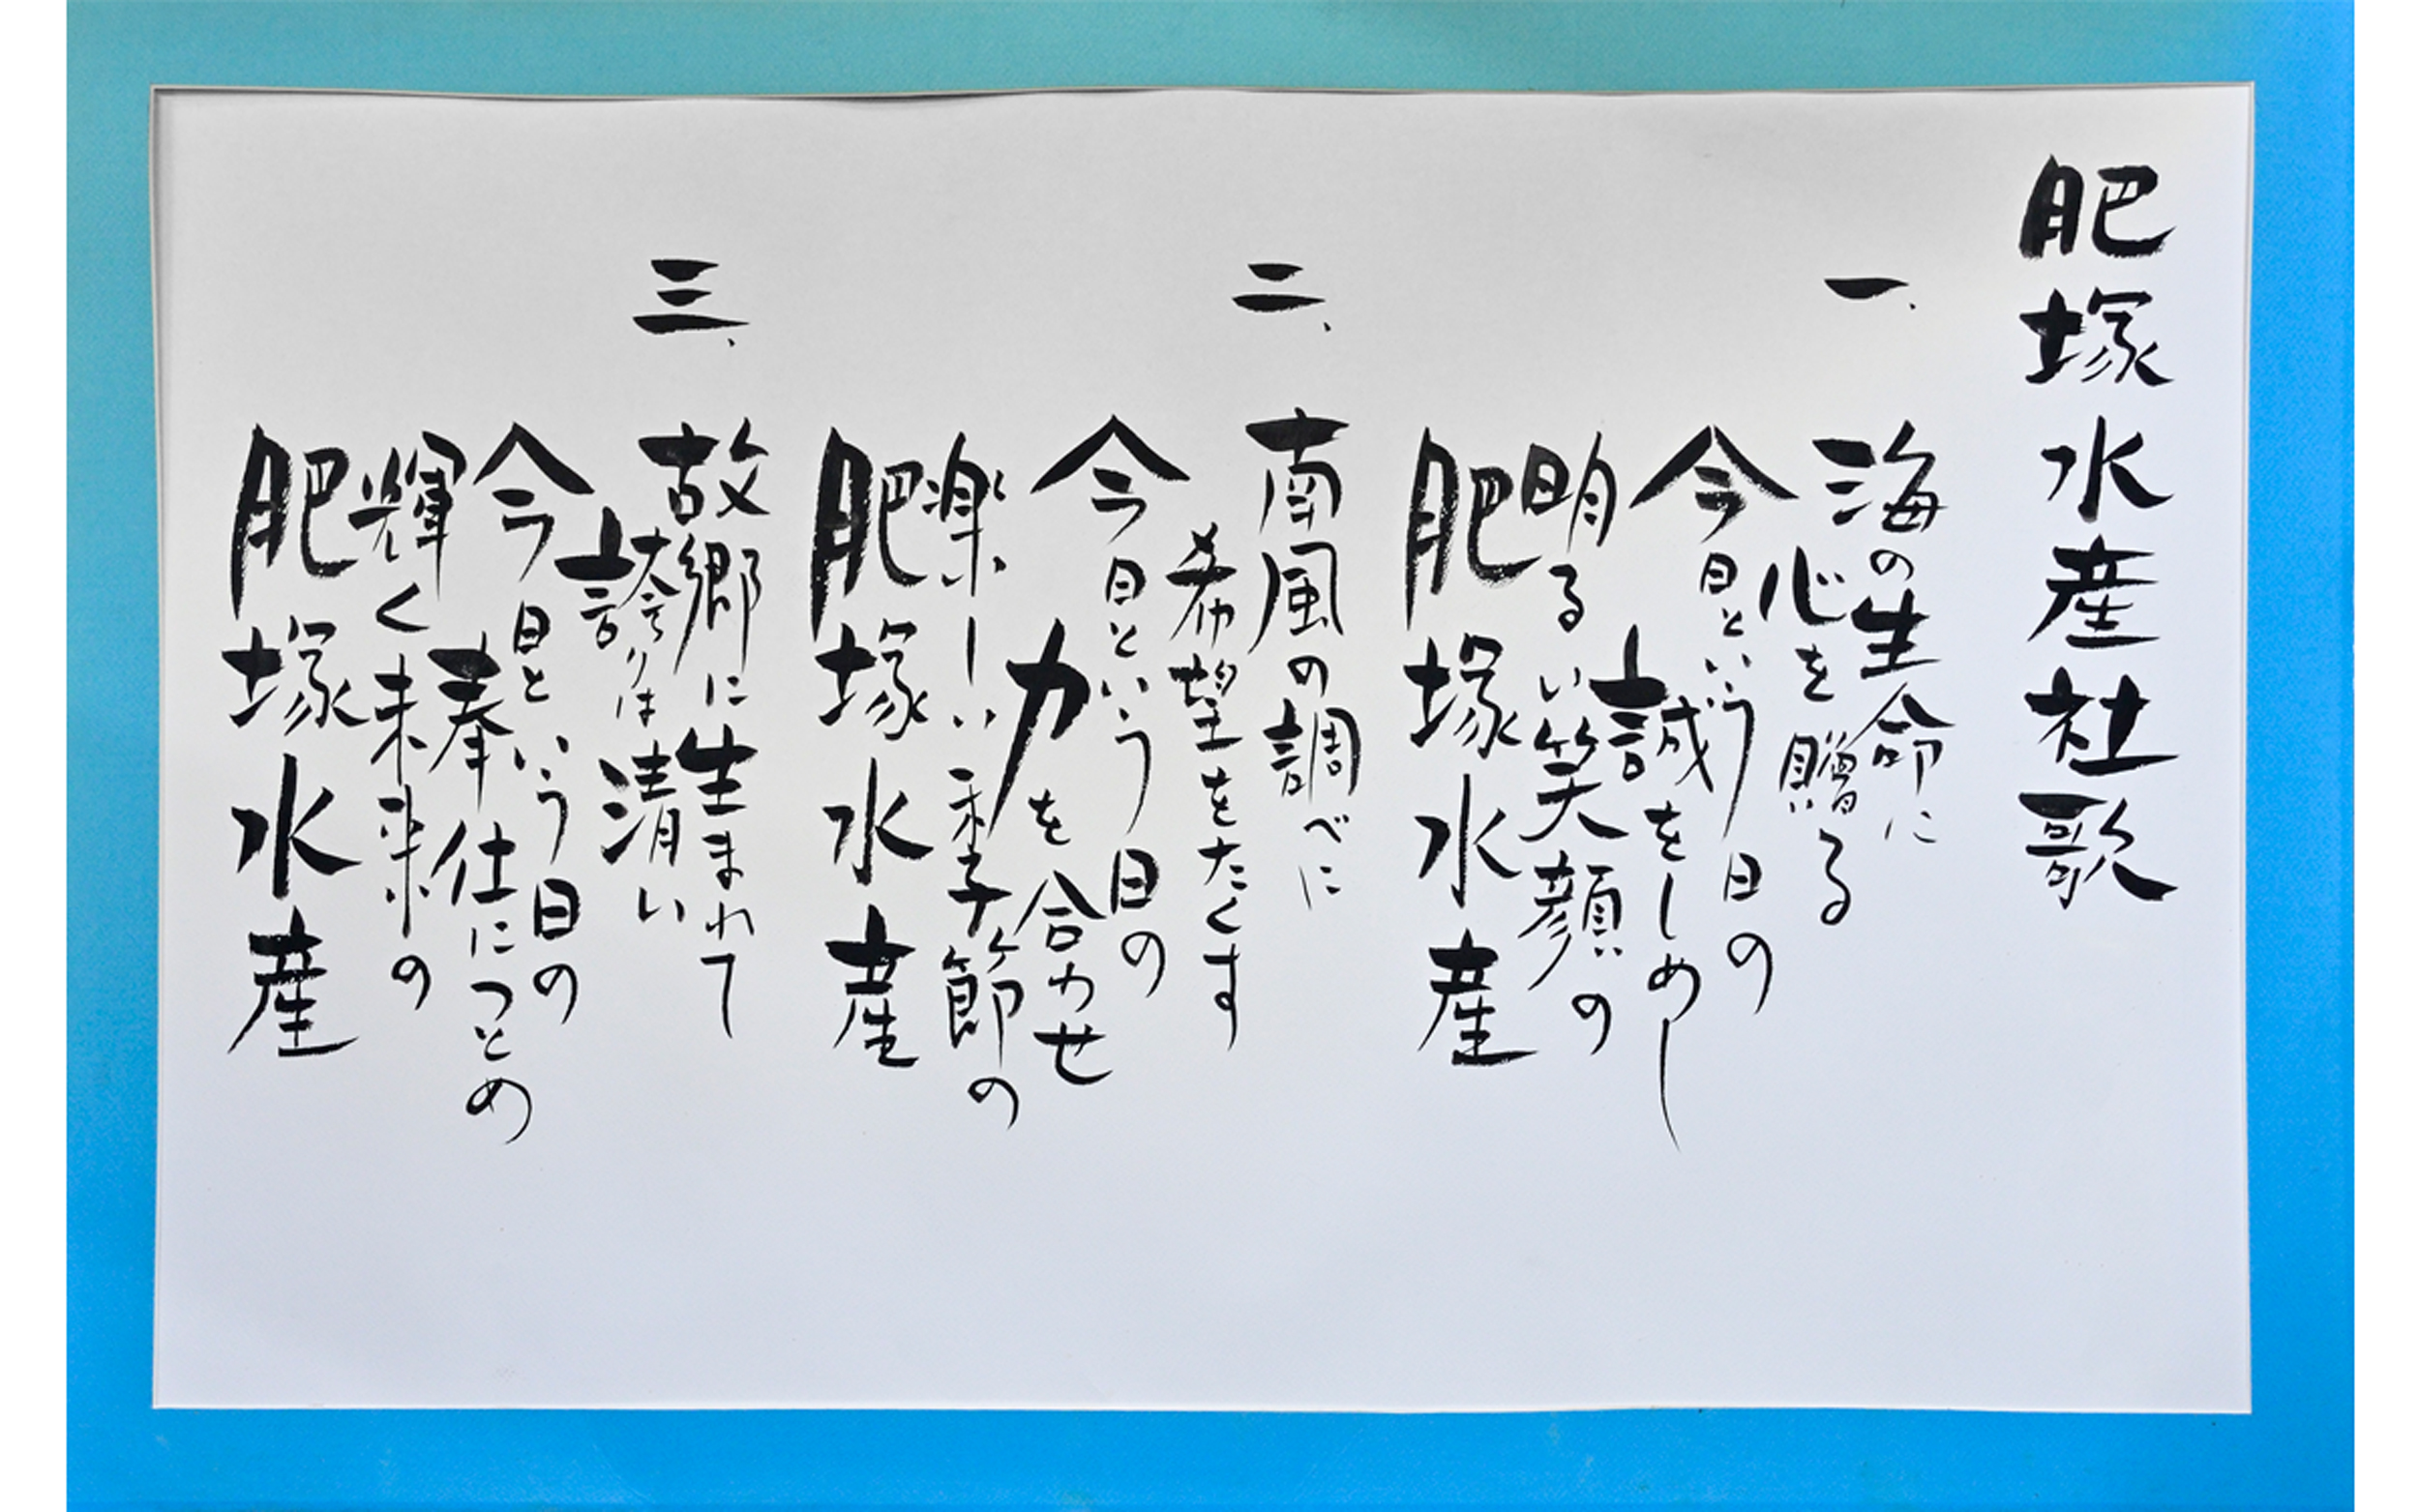 肥塚水産社歌
一、
海の生命に
心を贈る
今日という日の
誠をしめし
明るい笑顔の
肥塚水産
二、
南風の調べに
希望をたくす
今日という日の
力を合カせ
楽しい季節の
肥塚水産
三、
故郷に生まれて
誇りは清い
今日という日の
奉仕につとめ
輝く未来の
肥塚水産